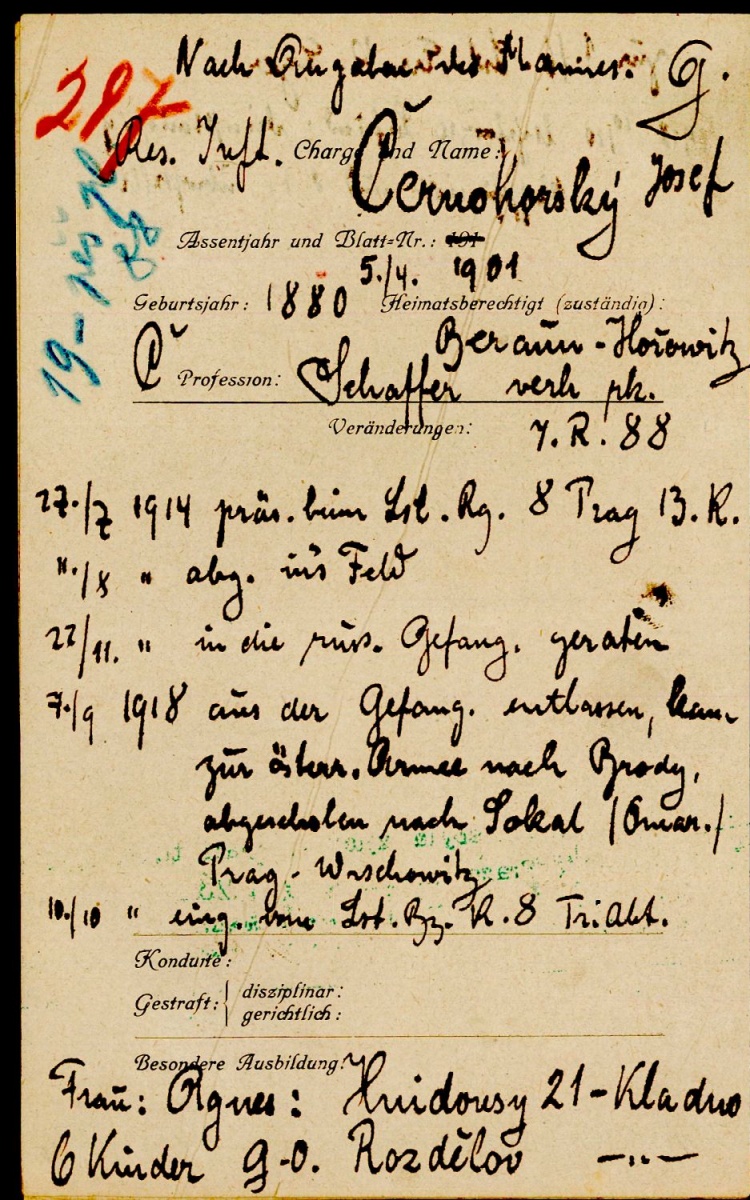 Nach Angabe des Mannes. G.
297
Res. Inft. Charge und Name: Černohorský Josef
Assentjahr und Blatt-Nr.: 191
5./4. 1901
Geburtsjahr: 1880 Heimatsberechtigt (zuständig):
Beraun-Hořowitz
Č Profession: Schaffer verh rk.
Veränderungen: J.R. 88
27./7 1914 präs. beim Lst. Rg. 8 Prag 13. K.
"./8 " abg. ins Feld
22/11. " in die russ. Gefang. geraten
7./9 1918 aus der Gefang. entlassen, kam
zur österr. Armee nach Brody,
abgeschoben nach Sokal
Prag - Wrschowitz
10./10 " eing. vom Lst. Bz. K. 8 Tri Abt.
Kondurte:
Gestraft: disziplinar:
gerichtlich:
Besondere Ausbildung:
Frau: Agnes: Hnidousy 21 - Kladno
6 Kinder G-O. Rozdělov —"—
19-